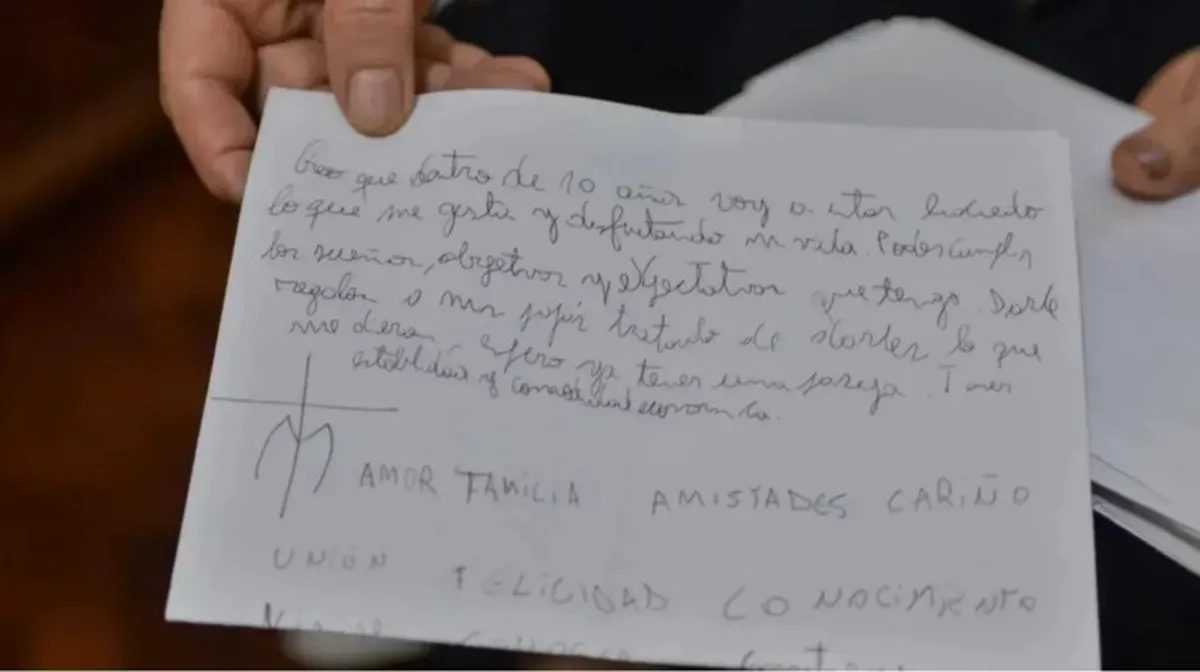 Creo que dentro de 10 años voy a estar haciendo
lo que me gusta y disfrutando mi vida. Poder cumplir
los sueños, objetivos y expectativas que tengo. Darle
regalos a mis papás tratando de darles lo que
me dieron, espero ya tener una pareja. Tener
estabilidad y económica.
AMOR FAMILIA AMISTADES CARIÑO
UNIÓN FELICIDAD CONOCIMIENTO